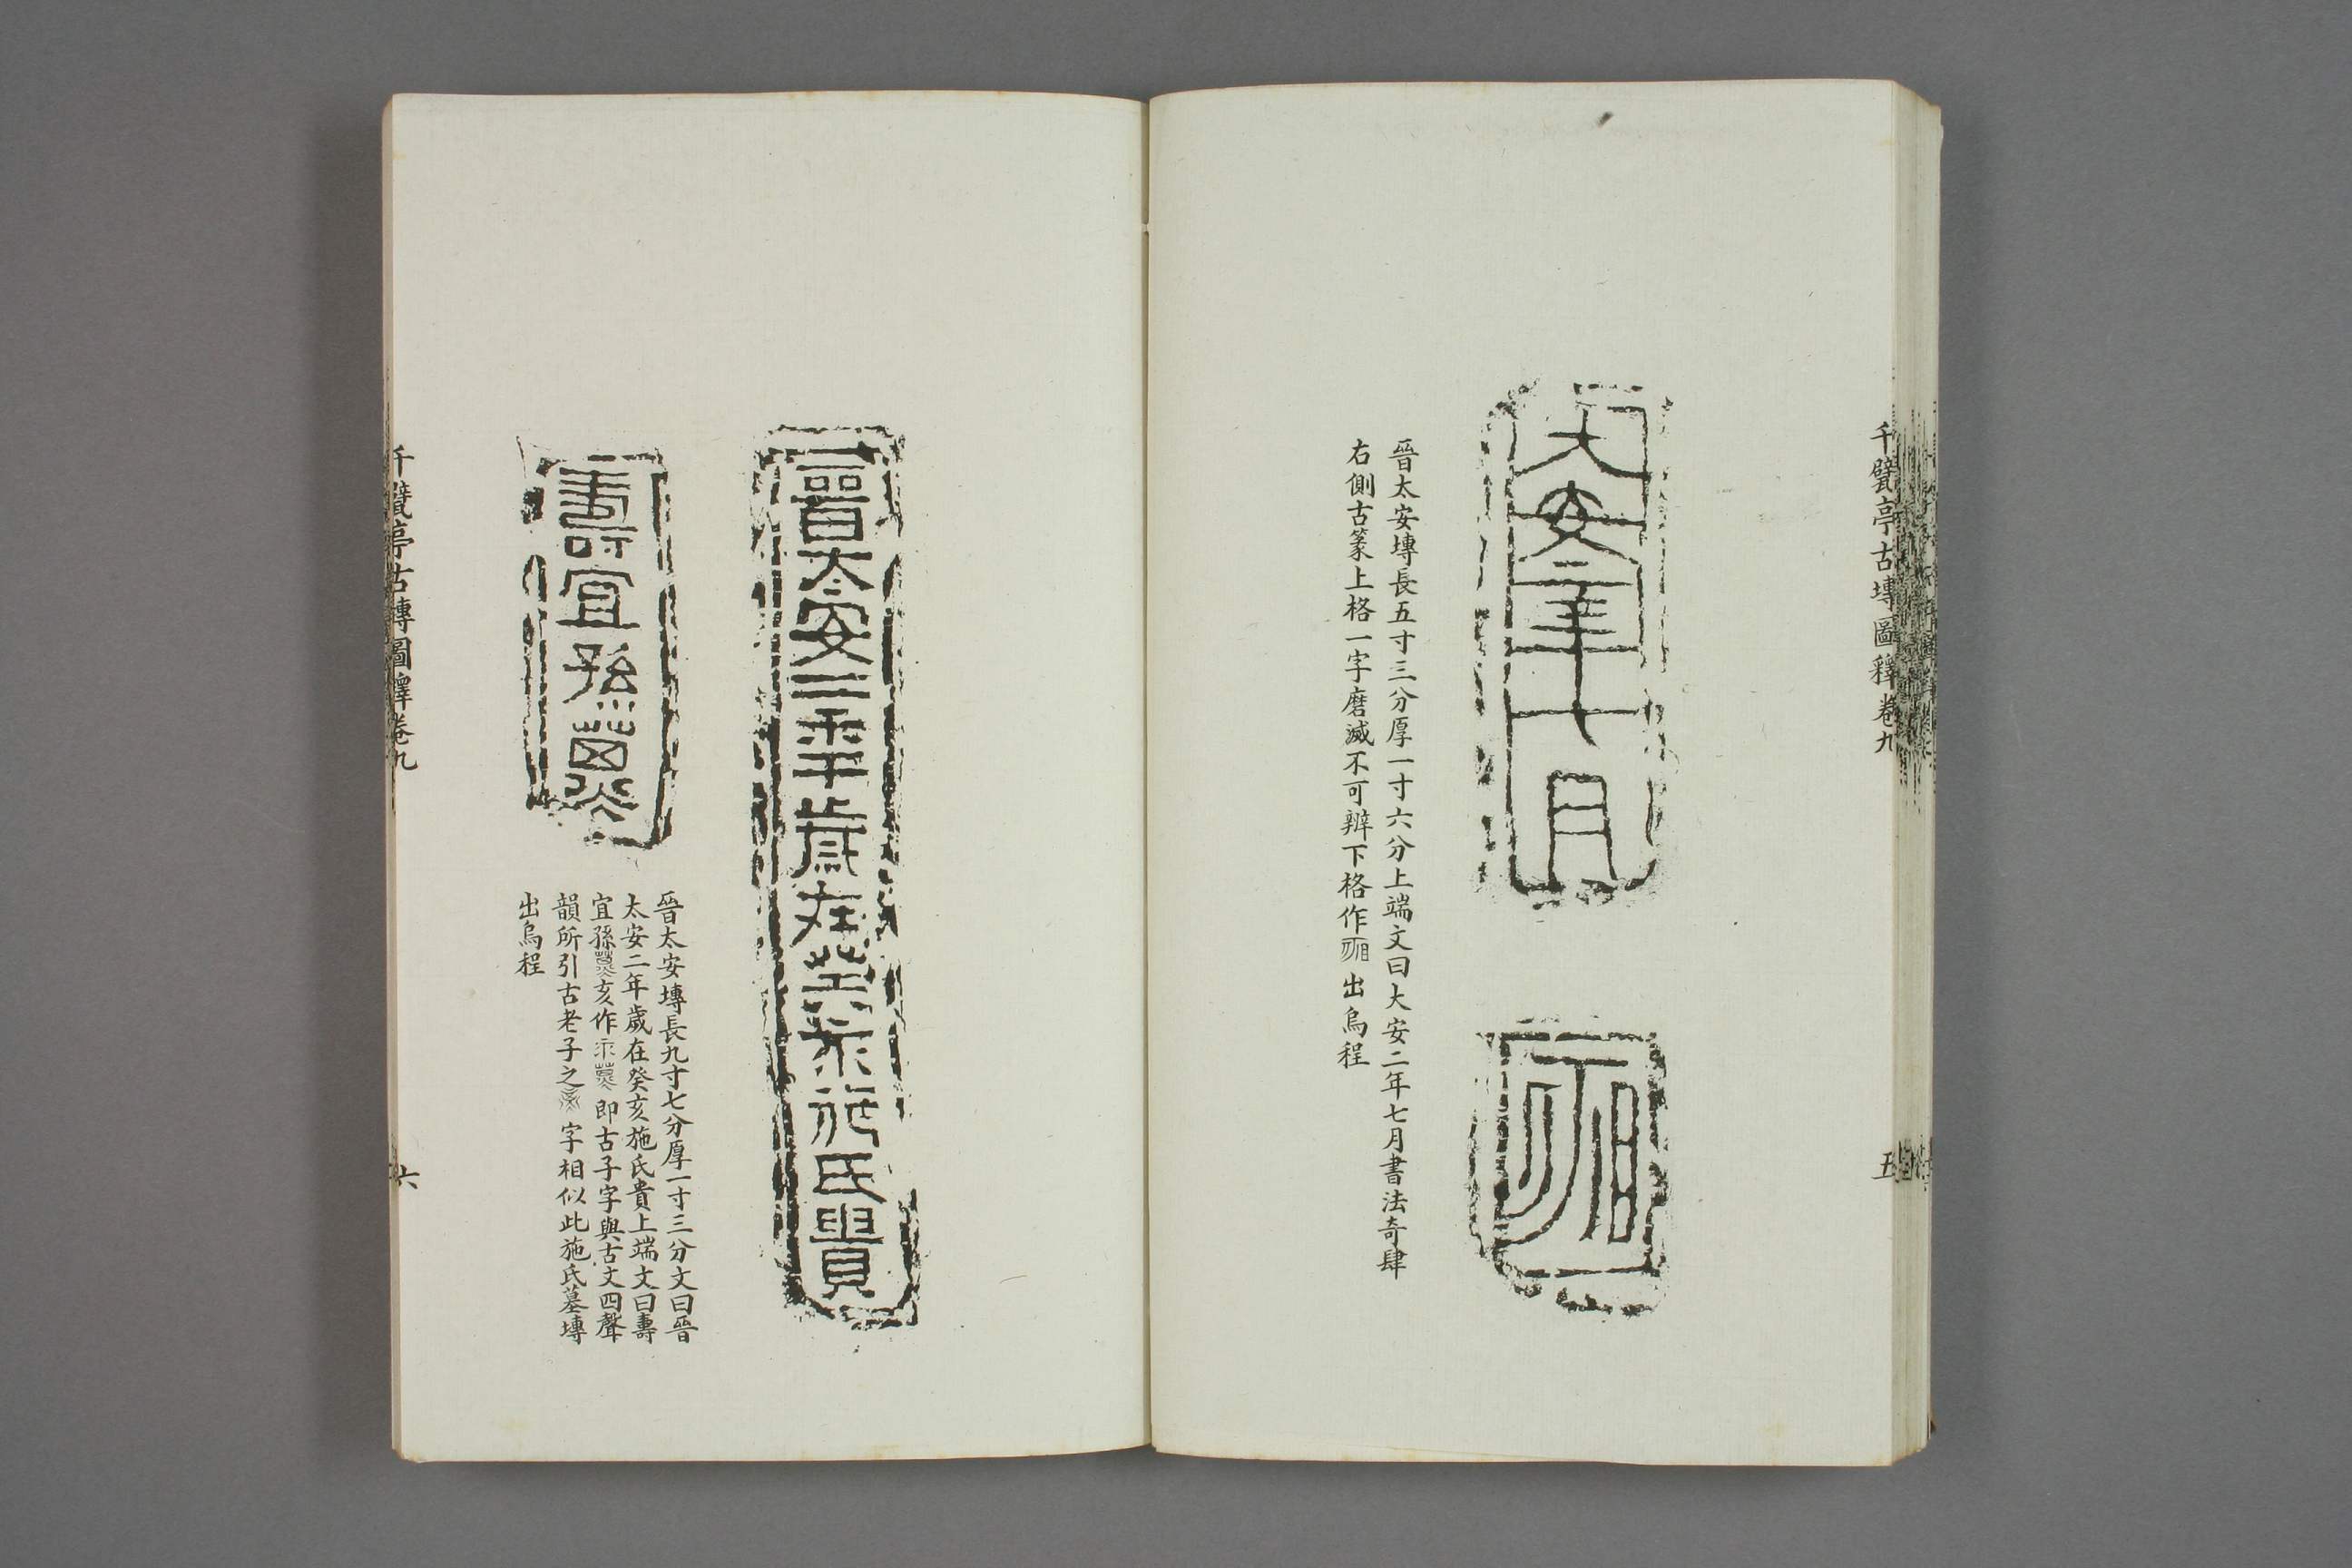 千甓亭古塼圖釋卷九
五
大安二年七月
晉太安塼長五寸三分厚一寸六分上端文曰大安二年七月書法奇肆
右側古篆上格一字磨滅不可辨下格作
出烏程
晉太安二年歲在癸亥施氏貴
壽宜孫
晉太安塼長九寸七分厚一寸三分文曰晉
太安二年歲在癸亥施氏貴上端文曰壽
宜孫
亥作
即古子字與古文四聲
韻所引古老子之
字相似此施氏墓塼
出烏程
千甓亭古塼圖釋卷九
六